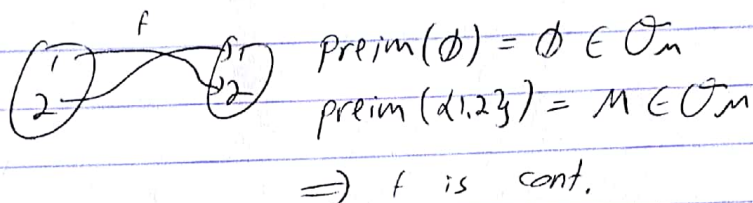 f
1 1
2 2
preim(∅) = ∅ ∈ O_M
preim({1,2}) = M ∈ O_M
⇒ f is cont.